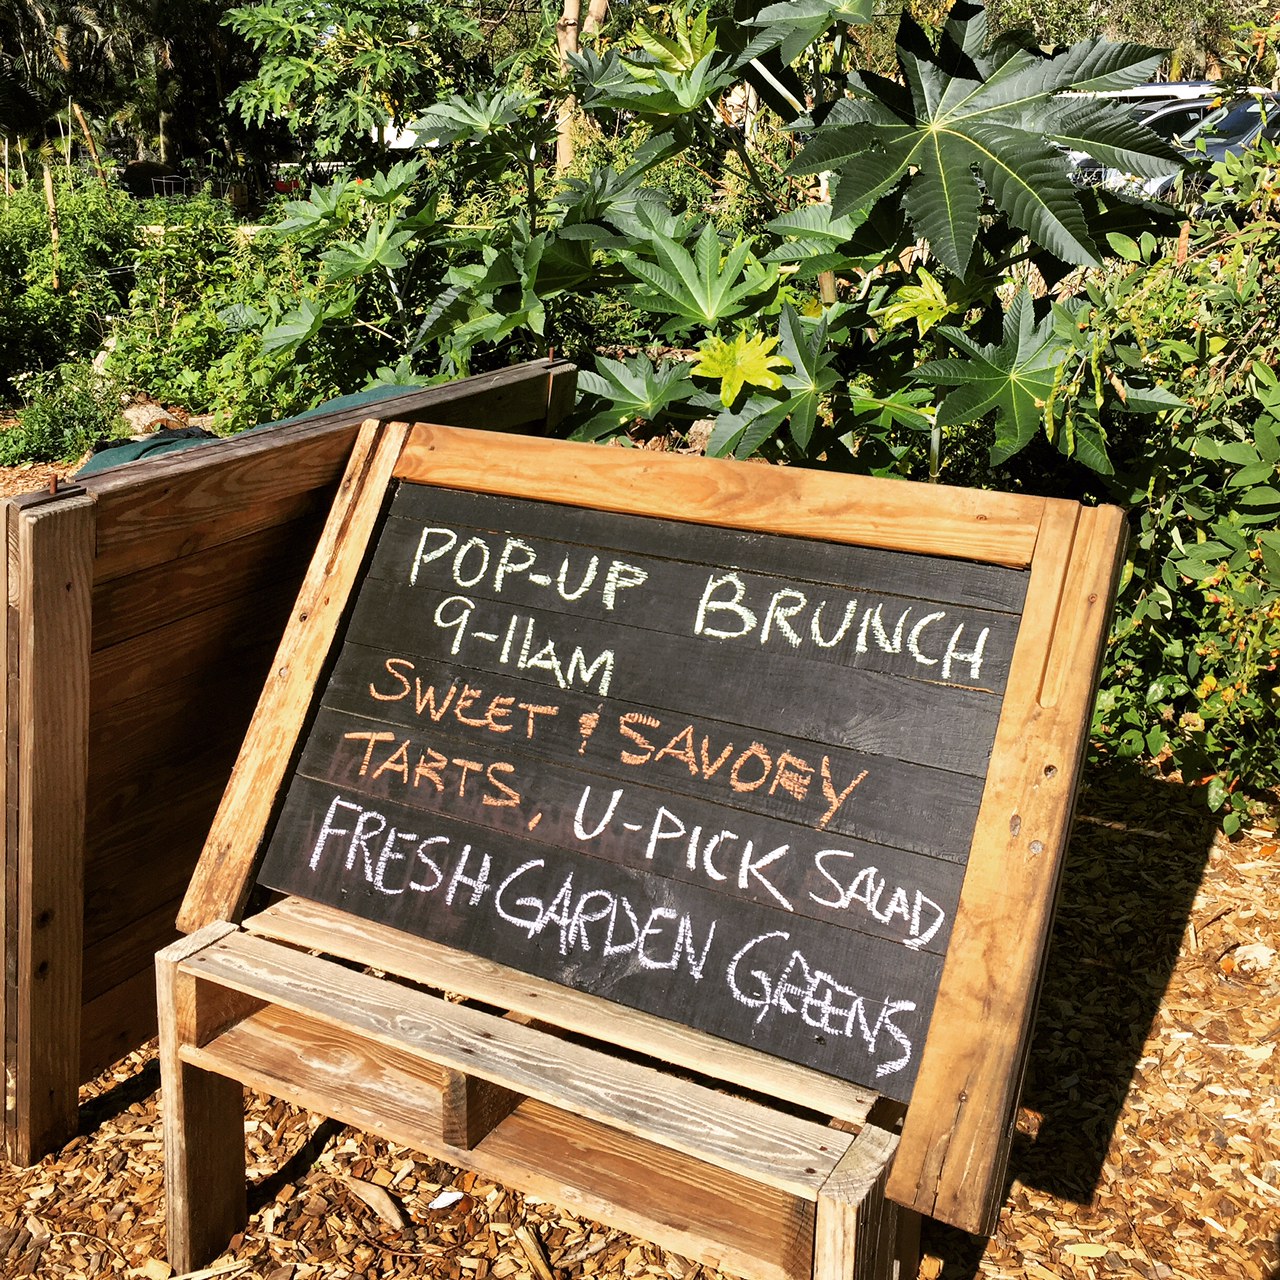 POP-UP BRUNCH
9-11AM
SWEET & SAVORY
TARTS, U-PICK SALAD
FRESH GARDEN GREENS